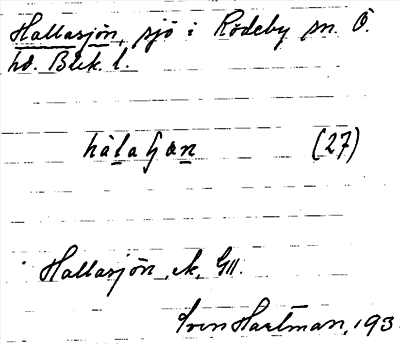 Hallasjön, sjö i Rödeby sn. Ö.
hd. Blek. l.
hàlaʃɶn (27)
Hallasjön, ek, GII.
Sven Hartman, 193